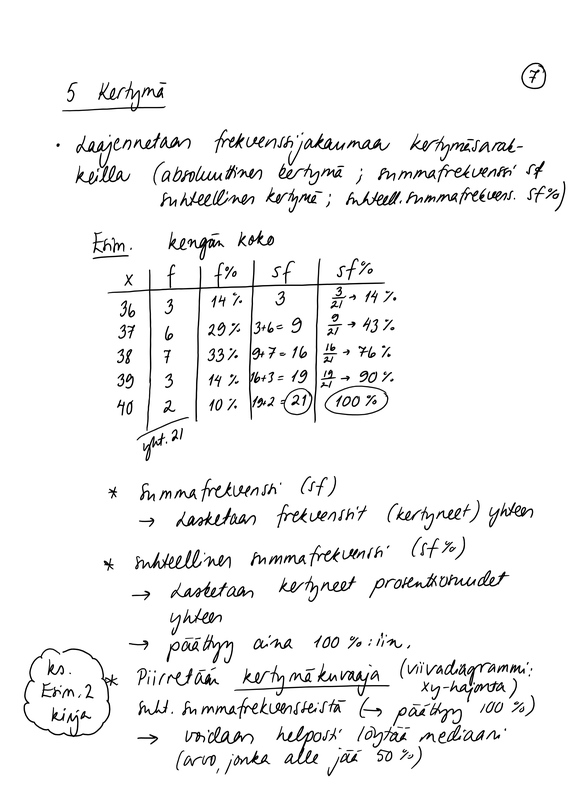 7
5 Kertymä
• Laajennetaan frekvenssijakaumaa kertymäsarak-
keilla (absoluuttinen kertymä ; summafrekvenssi sf
suhteellinen kertymä ; suhteell. summafrekvens. sf%)
Esim. kengän koko
x f f% sf sf%
36 3 14 % 3 3/21 → 14 %
37 6 29 % 3+6 = 9 9/21 → 43 %
38 7 33 % 9+7 = 16 16/21 → 76 %
39 3 14 % 16+3 = 19 19/21 → 90 %
40 2 10 % 19+2 = 21 100 %
yht. 21
* Summafrekvenssi (sf)
→ Lasketaan frekvenssit (kertyneet) yhteen
* suhteellinen summafrekvenssi (sf%)
→ Lasketaan kertyneet prosenttiosuudet
yhteen
→ päättyy aina 100 %:iin.
* Piirretään kertymäkuvaaja (viivadiagrammi:
xy-hajonta)
suht. summafrekvensseistä (→ päättyy 100 %)
→ voidaan helposti löytää mediaani
(arvo, jonka alle jää 50 %)
ks.
Esim. 2
kirja